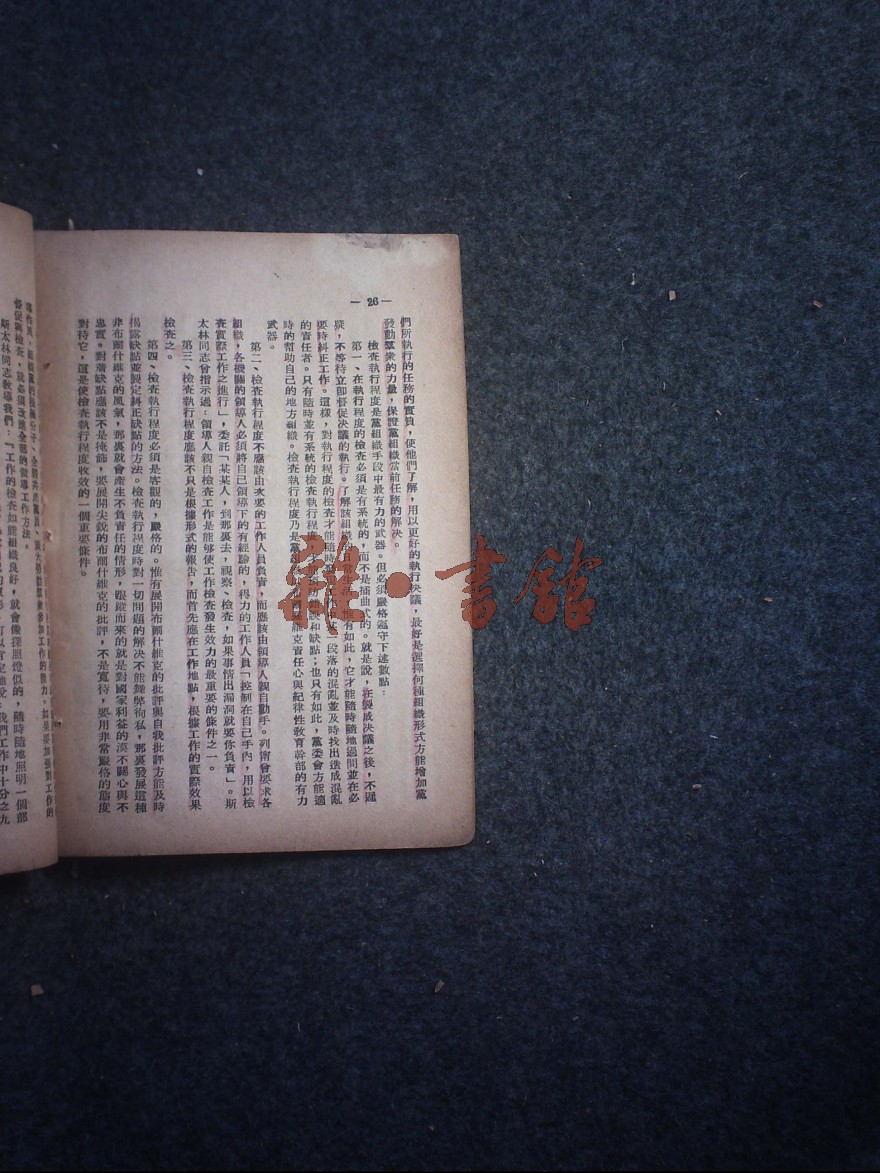 — 26 —
們所執行的任務的實質，使他們了解，用以更好的執行決議，最好是選擇何種組織形式方能增加黨
發動羣衆的力量，保證黨組織當前任務的解决。
檢查執行程度是黨組織手段中最有力的武器。但必須嚴格遵守下述數點：
第一、在執行程度的檢查必須是有系統的，而不是插曲式的。就是說，在製成決議之後，不遲
疑，不等待立即督促決議的執行。了解該組織 有如此，它才能隨時隨地過問並在必
要時糾正工作。這樣，對執行程度的檢查才能隨時 一段落的混亂並及時找出造成混亂
的責任者。只有隨時並有系統的檢查執行程度 誤和缺點；也只有如此，黨委會方能適
時的幫助自己的地方組織。檢查執行程度乃是黨 維克責任心與紀律性教育幹部的有力
武器。
第二、檢查執行程度不應該由次要的工作人員負責，而應該由領導人親自動手。列甯曾要求各
組織，各機關的領導人必須將自己領導下的有經驗的，得力的工作人員「控制在自己手內，用以檢
查實際工作之進行」，委託「某某人，到那裏去，視察、檢查，如果事情出漏洞就要你負責」。斯
太林同志曾指示過：領導人親自檢查工作是能够使工作檢查發生效力的最重要的條件之一。
第三、檢查執行程度應該不只是根據形式的報告，而首先應在工作地點，根據工作的實際效果
檢查之。
第四、檢查執行程度必須是客觀的，嚴格的。惟有展開布爾什維克的批評與自我批評方能及時
揭露缺點並製定糾正缺點的方法。檢查執行程度時對一切問題的解决不能舞弊徇私，那裏發展這種
非布爾什維克的風氣，那裏就會產生不負責任的情形，跟蹤而來的就是對國家利益的漠不關心與不
忠實。對着缺點應該不是掩飾，要展開尖銳的布爾什維克的批評，不是寬待，要用非常嚴格的態度
對待它，這是使檢查執行程度收效的一個重要條件。
督促與檢查，就必須改進全部的領導工作方法。
斯太林同志教導我們：『工作的檢查如能組織良好，就會像探照燈似的，隨時隨地照明一個部
我們工作中十分之九
雜·書館